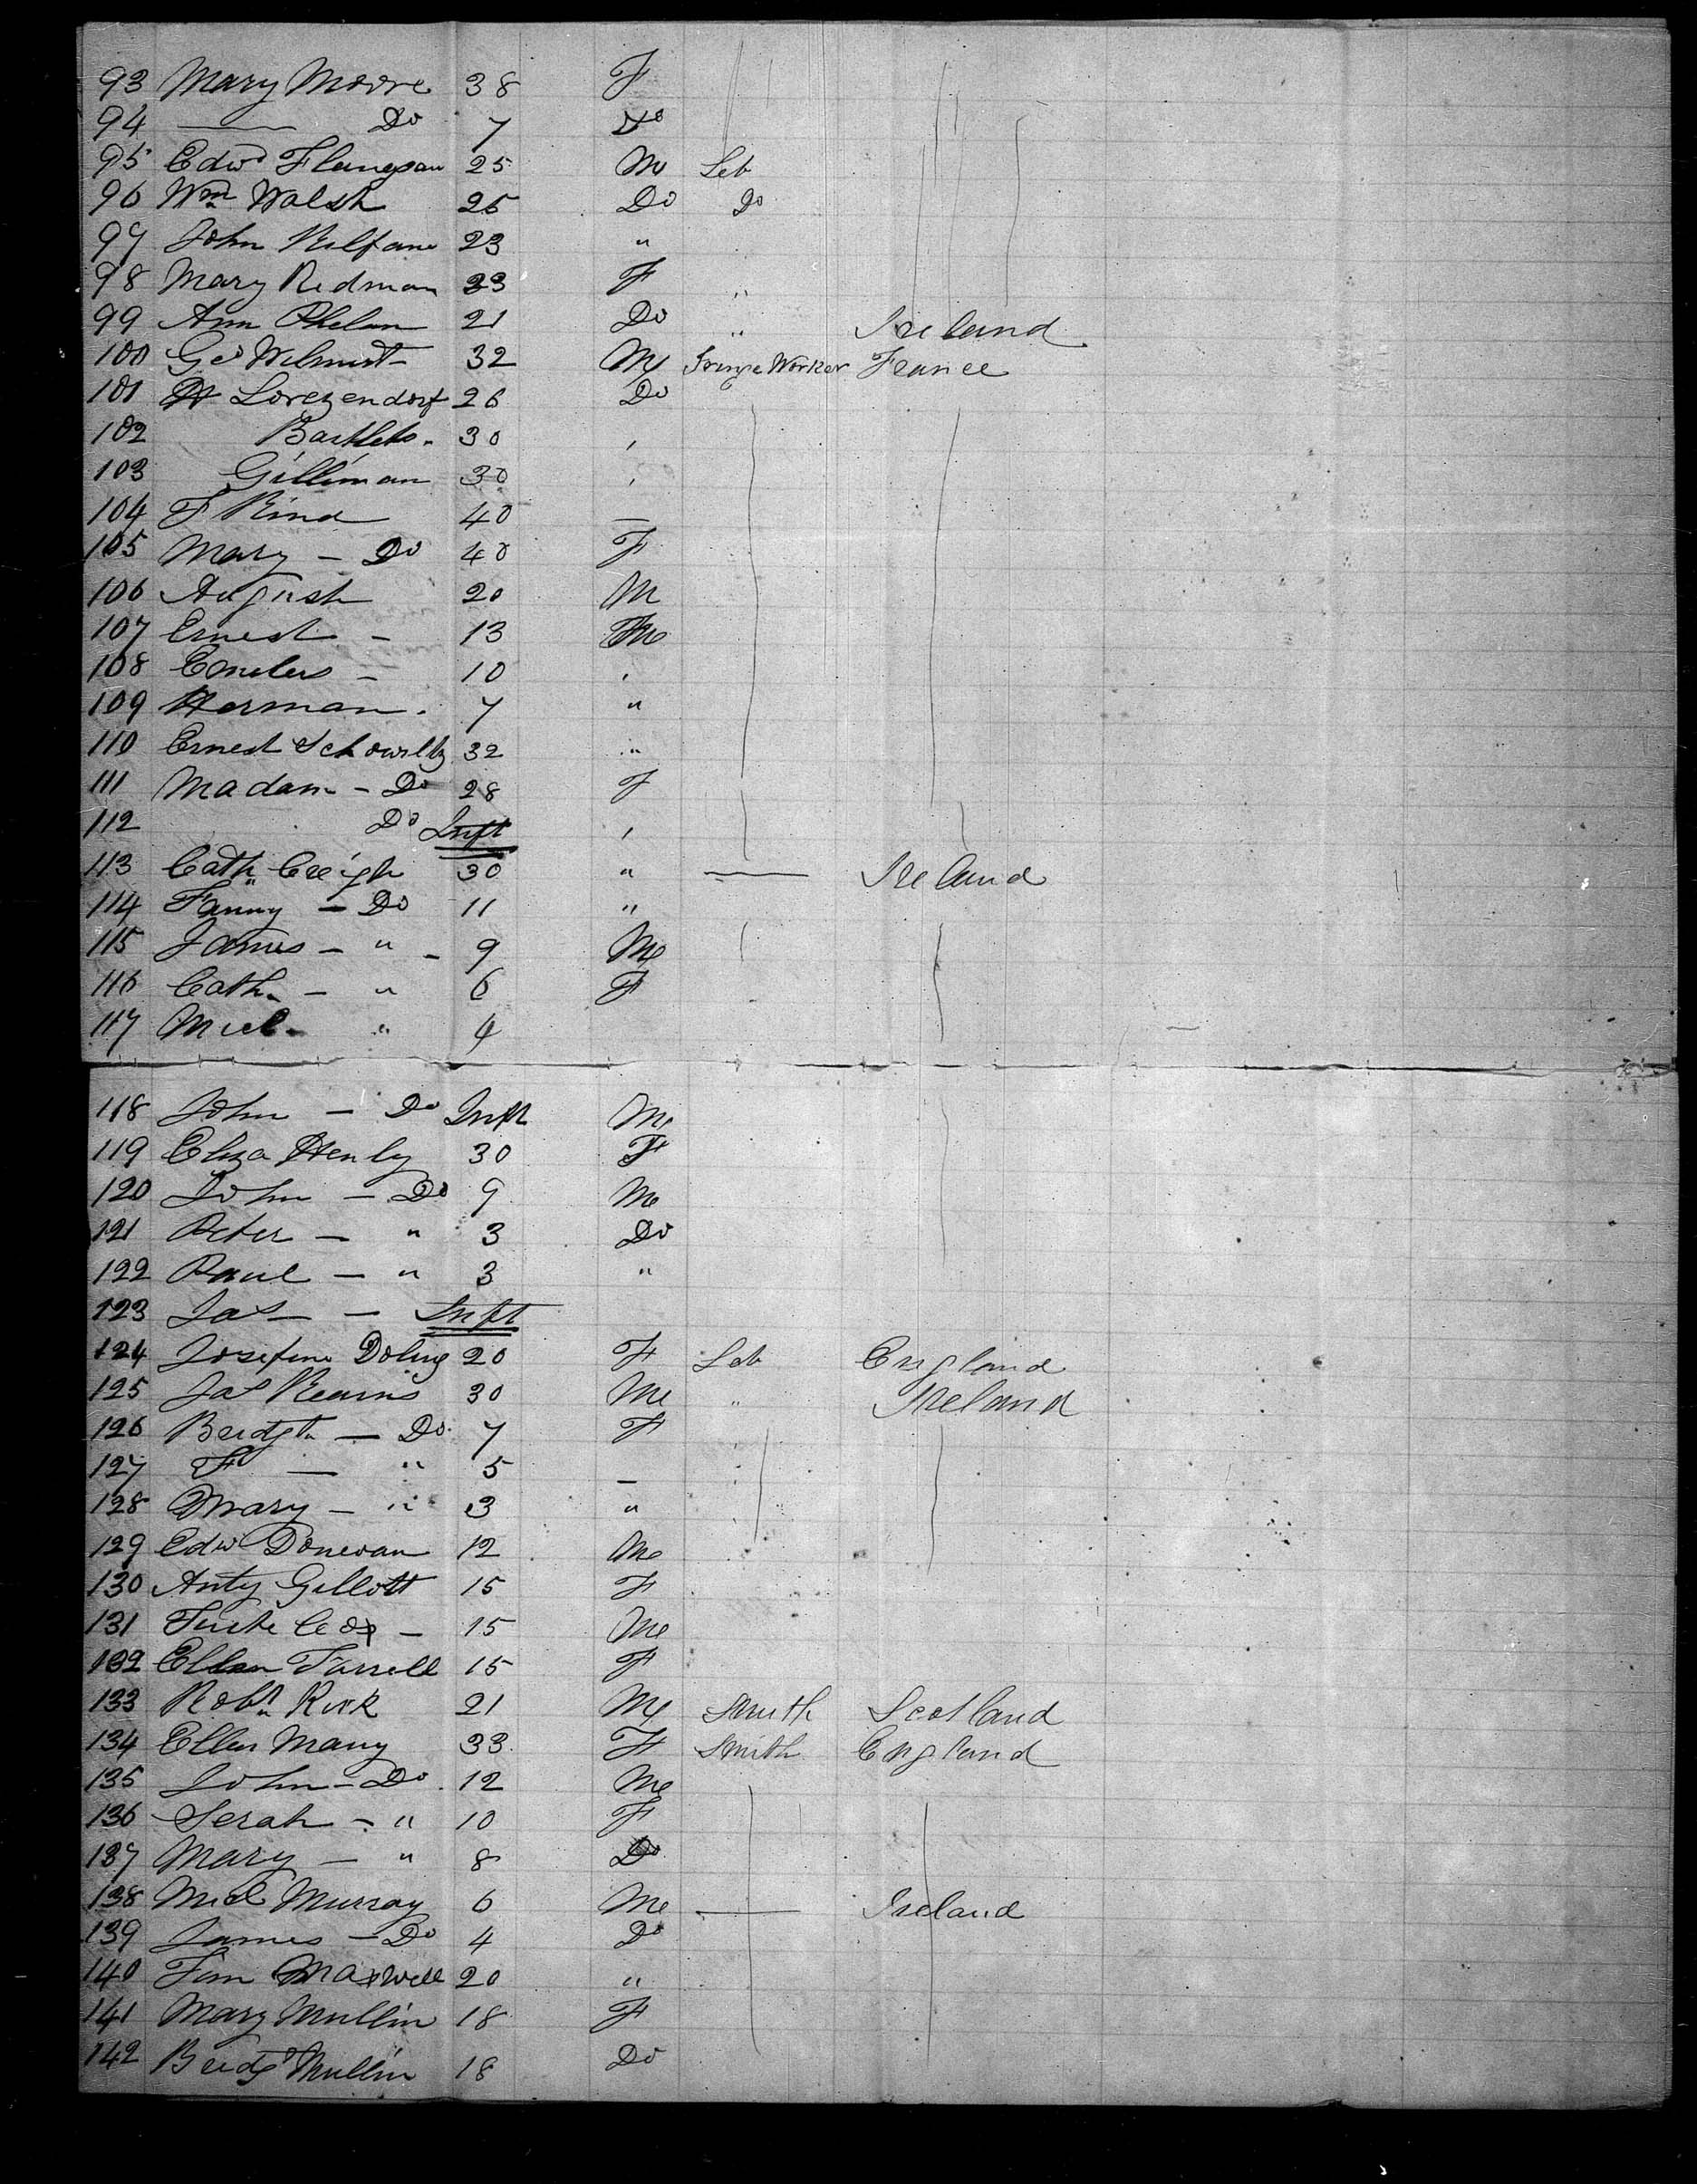 93 Mary Moore 38 F
94 — Do 7 Do
95 Edwd Flanegan 25 M Lab
96 Wm Walsh 25 Do Do
97 John 23 "
98 Mary Redman 23 F "
99 Ann Phelan 21 Do " Ireland
100 Geo Wilmot 32 M Worker France
101 26 Do
102 30 "
103 Gilliman 30 "
104 F Kind 40 —
105 Mary — Do 40 F
106 August 20 M
107 Ernest — 13 M
108 — 10 "
109 Herman 7 "
110 Ernest 32 "
111 Madam — Do 28 F
112 Do Inft "
113 Cath Creigh 30 " — Ireland
114 Fanny — Do 11 "
115 James — " — 9 M
116 Cath — " 6 F
117 Micl " 4
118 John — Do Inft M
119 Eliza Henly 30 F
120 John — Do 9 M
121 Peter — " 3 Do
122 Paul — " 3 "
123 Jas — Inft
124 Josefine 20 F Lab England
125 Jas Kearns 30 M " Ireland
126 Bridgt — Do 7 F
127 F — " 5 —
128 Mary — " 3 "
129 Edwd Donevan 12 M
130 Anty Gillott 15 F
131 — 15 M
132 Ellen Farrell 15 F
133 Robt Kirk 21 M Smith Scotland
134 Ellen Many 33 F Smith England
135 John — Do 12 M
136 Serah — " 10 F
137 Mary — " 8 Do
138 Micl Murray 6 M — Ireland
139 James — Do 4 Do
140 Maxwell 20 "
141 Mary Mullin 18 F
142 Bridgt Mullin 18 Do